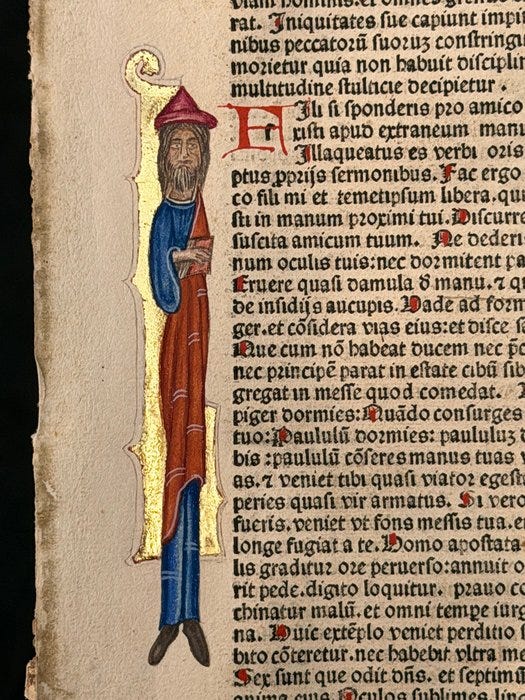 viam hominis.et omnes
rat. Iniquitates sue capiunt impi
nibus peccatorū suoruꝫ constringi
morietur quia non habuit disciplin
multitudine stulticie decipietur.
Fili si sponderis pro amico
xisti apud extraneum manu
Illaqueatus es verbi oris
ptus ꝓprijs sermonibus. Fac ergo
co fili mi et temetipsum libera.qui
sti in manum proximi tui. Discurre
suscita amicum tuum. Ne dederi
num oculis tuis:nec dormitent pa
Eruere quasi damula ð manu.⁊ qu
de insidijs aucupis. Vade ad form
ger.et cōsidera vias eius:et disce s
Que cum nō habeat ducem nec p̄c
nec principē parat in estate cibū sib
gregat in messe quod comedat.
piger dormies: Quādo consurges
tuo: Paululū dormies: paululuꝫ d
bis :paululū cōseres manus tuas v
as.⁊ veniet tibi quasi viator egest
peries quasi vir armatus. Si vero
fueris.veniet vt fons messis tua.e
longe fugiat a te. Homo apostata
lis graditur ore peruerso:annuit o
rit pede.digito loquitur. prauo co
chinatur malū.et omni tempe iurg
na. Huic extēplo veniet perditio s
bito cōteretur.nec habebit vltra me
Sex sunt que odit dn̄s. et septimū
anima eius. Oculos sublimes.lin